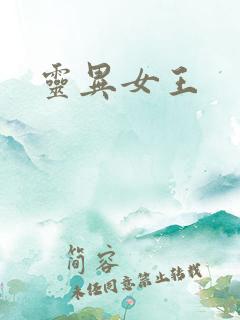 靈異女王
简容
未经同意禁止转载